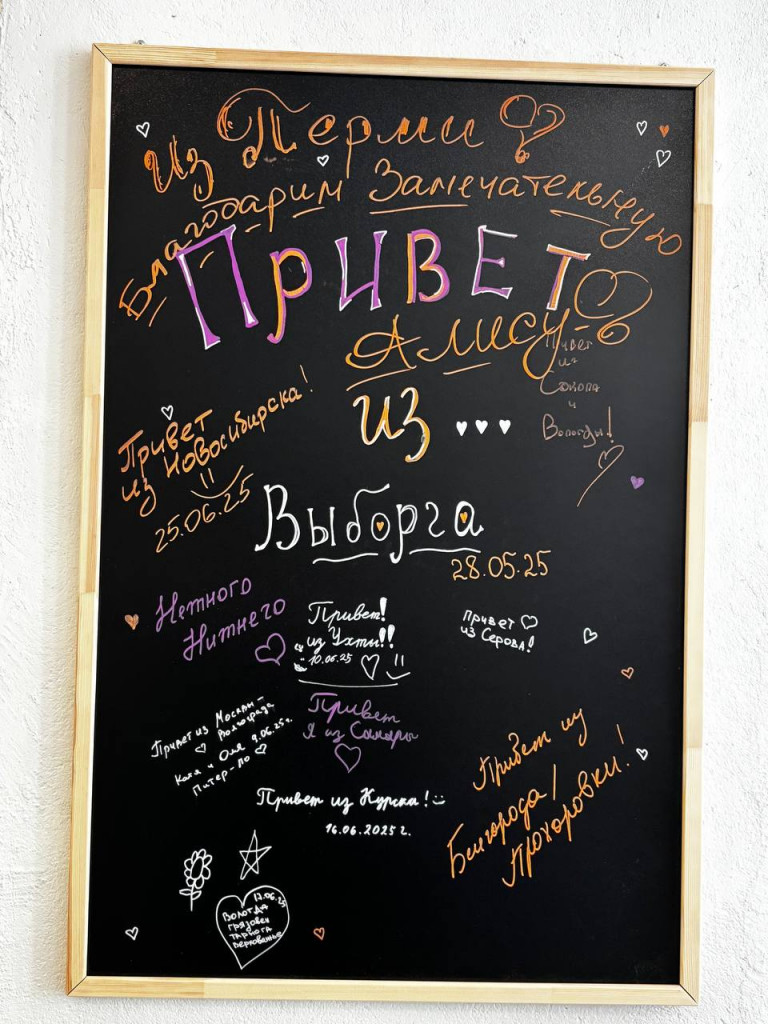 Из Перми
Благодарим Замечательную
ПРИВЕТ
Алису
Привет
из
Сокола
и
Вологды!
из ...
Привет
из Новосибирска!
25.06.25
Выборга
28.05.25
Немного
Нижнего
Привет!
из Ухты!!
10.06.25
Привет
из Серова!
Привет из Москвы-
Волгограда
Катя и Оля 9.06.25г.
Питер-ЛО
Привет
Я из Самары
Привет из
Белгорода/
Прохоровки!
Привет из Курска!
16.06.2025 г.
17.06.25
Вологда
Грязовец
Тарнога
Верховажье